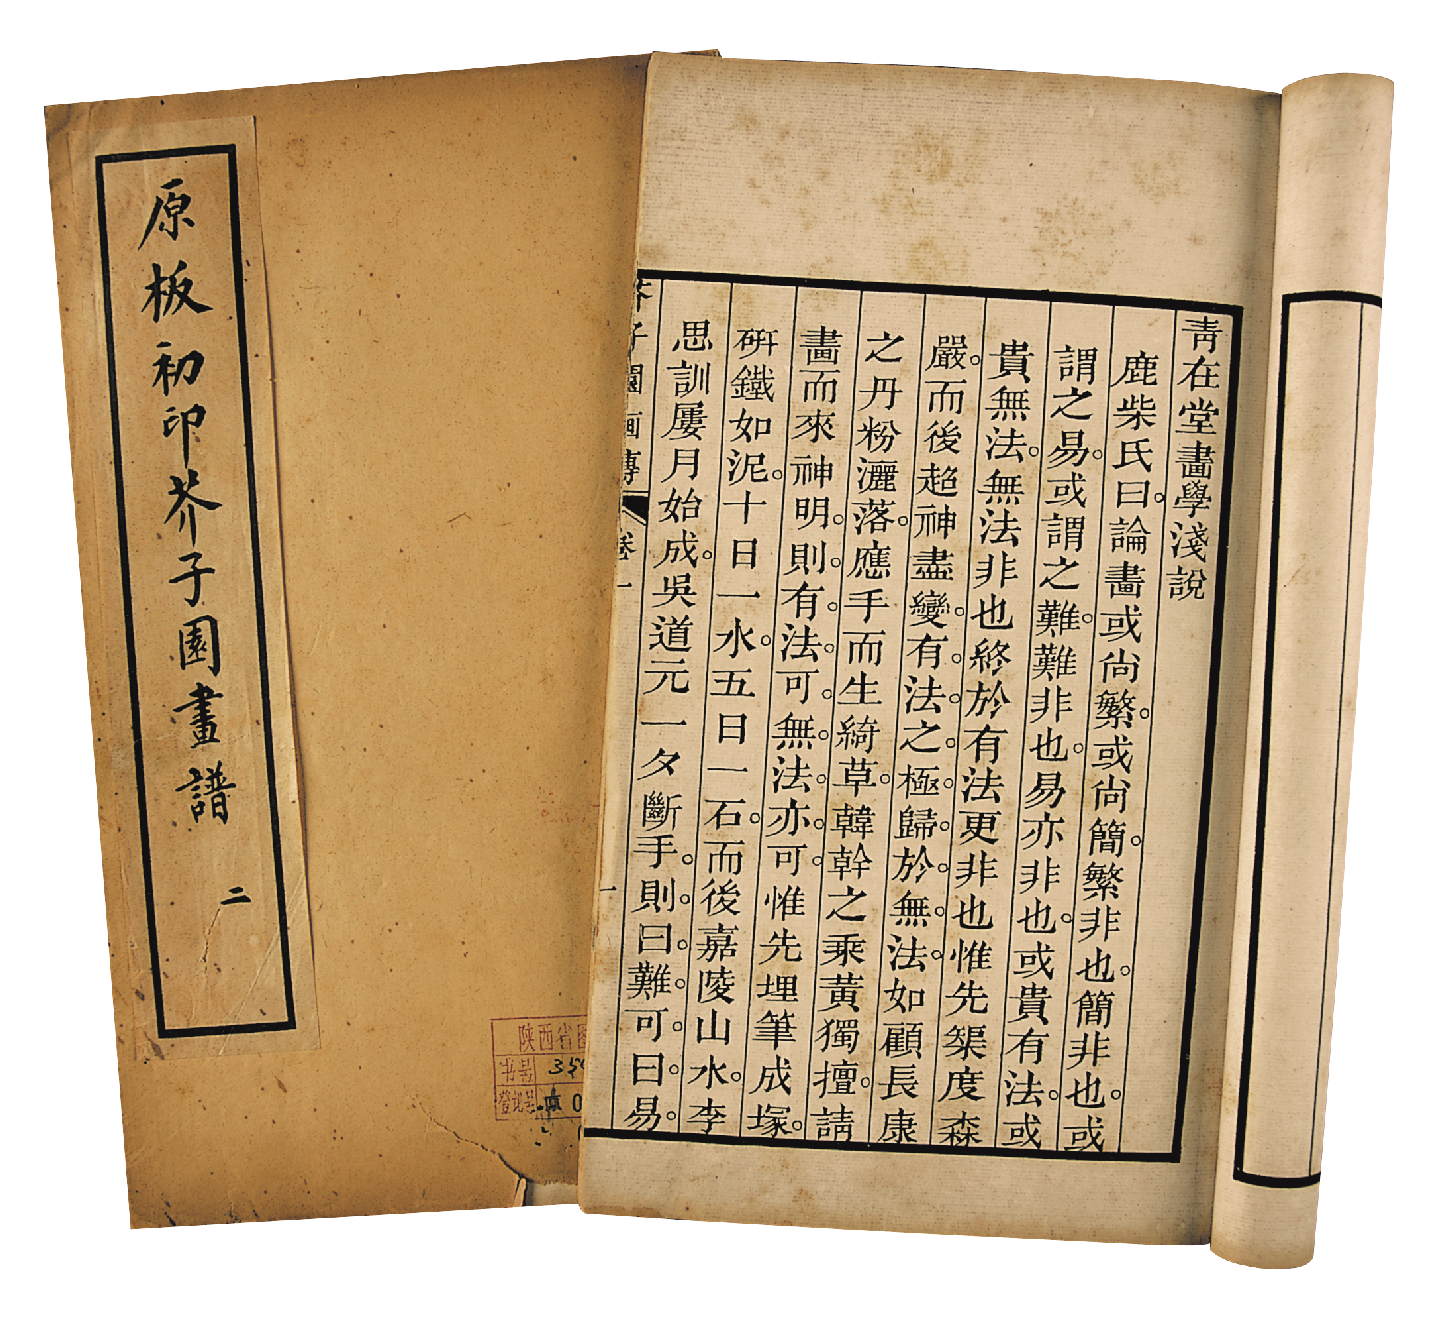 原板初印芥子園畫譜
二
青在堂畫學淺說
鹿柴氏曰。論畫或尙繁。或尙簡。繁非也。簡非也。或
謂之易。或謂之難。難非也。易亦非也。或貴有法。或
貴無法。無法非也。終於有法更非也。惟先榘度森
嚴。而後超神盡變。有法之極。歸於無法。如顧長康
之丹粉灑落。應手而生綺草。韓幹之乘黃獨擅。請
畫而來神明。則有法可。無法亦可。惟先埋筆成塚。
硏鐵如泥。十日一水。五日一石。而後嘉陵山水。李
思訓屢月始成。吳道元一夕斷手。則曰難可。曰易。
芥子園画傳
卷一
一
陕西省图
书号
登记号